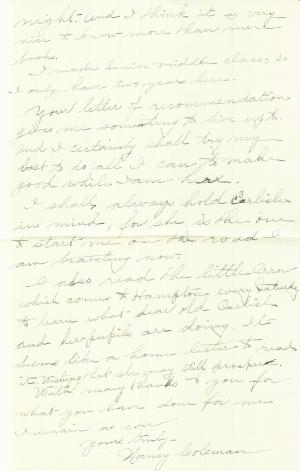 night - and I think it is very
nice to know more than mere
books.
I made Senior middle class, so
I only have two years here.
Your letter of recommendation
gives me something to live up to.
and I certainly shall try my
best to do all I can to make
good while I am here.
I shall always hold Carlisle
in mind, for she is the one
to start me on the road I
am traveling now.
I also read the little Arrow
which comes to Hampton every Saturday
to learn what dear old Carlisle
and her pupils are doing. It
seems like a home letter to read
it. Wishing that she may still prosper.
With many thanks to you for
what you have done for me
I remain as ever
Yours truly.
Nancy Coleman